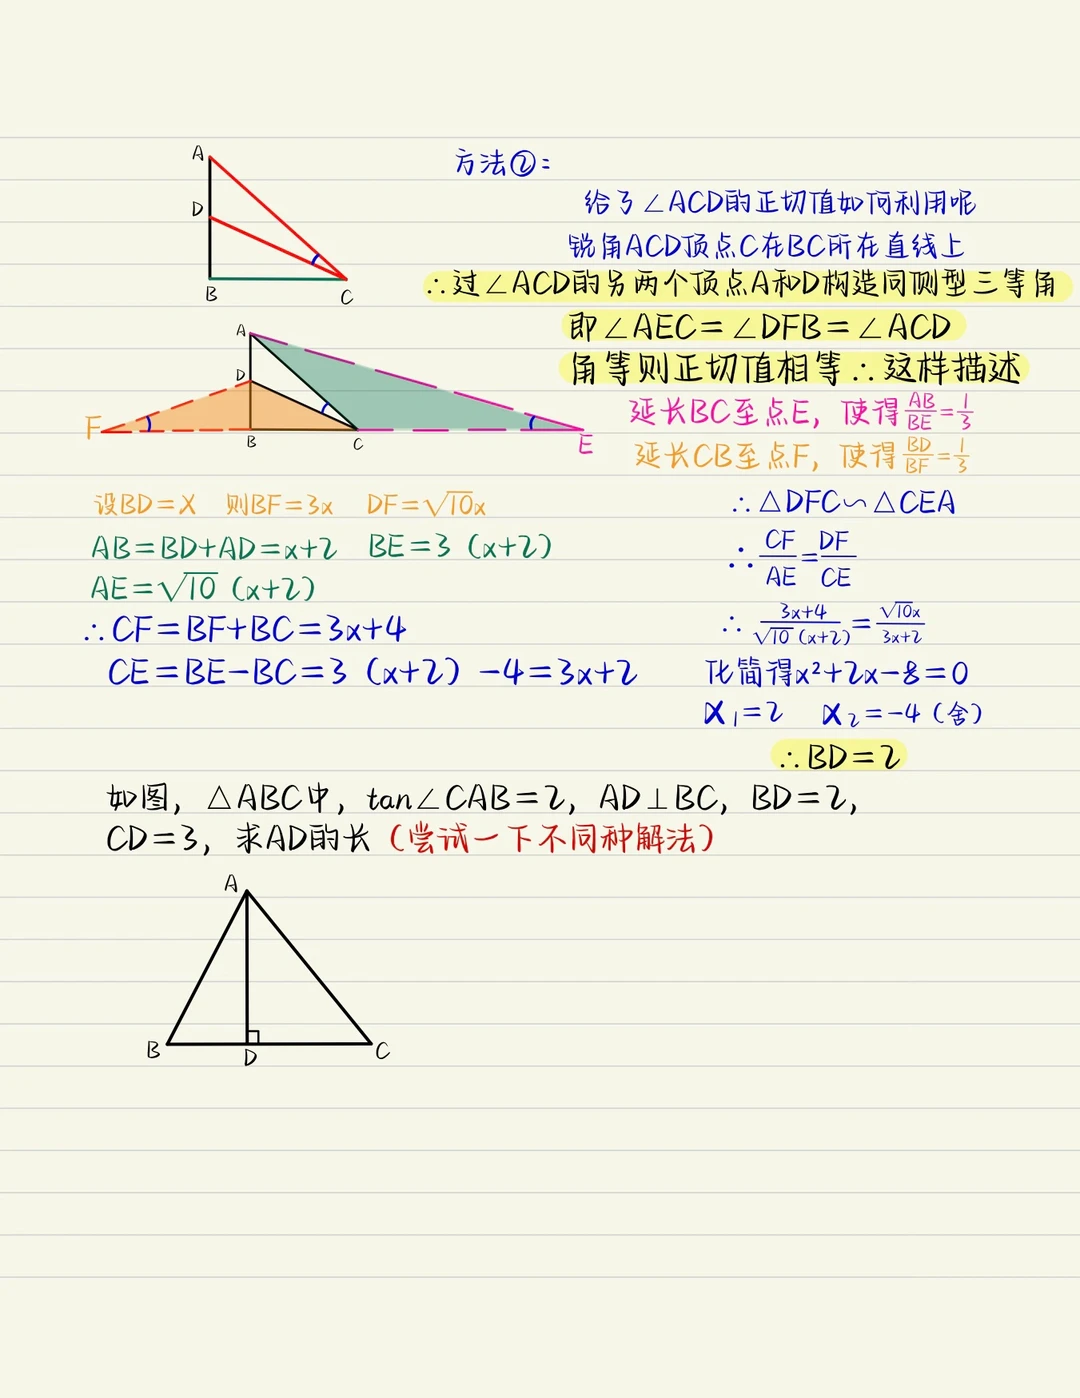 A
D
B
C
方法②:
给了∠ACD的正切值如何利用呢
锐角ACD顶点C在BC所在直线上
∴过∠ACD的另两个顶点A和D构造同侧型三等角
即∠AEC=∠DFB=∠ACD
角等则正切值相等∴这样描述
延长BC至点E, 使得AB/BE=1/3
延长CB至点F, 使得BD/BF=1/3
A
D
F
B
C
E
设BD=X 则BF=3x DF=√10x
AB=BD+AD=x+2 BE=3(x+2)
AE=√10(x+2)
∴CF=BF+BC=3x+4
CE=BE-BC=3(x+2)-4=3x+2
∴△DFC∽△CEA
∴CF/AE=DF/CE
∴3x+4/√10(x+2)=√10x/3x+2
化简得x²+2x-8=0
X₁=2 X₂=-4(舍)
∴BD=2
如图, △ABC中, tan∠CAB=2, AD⊥BC, BD=2,
CD=3, 求AD的长(尝试一下不同种解法)
A
B
D
C